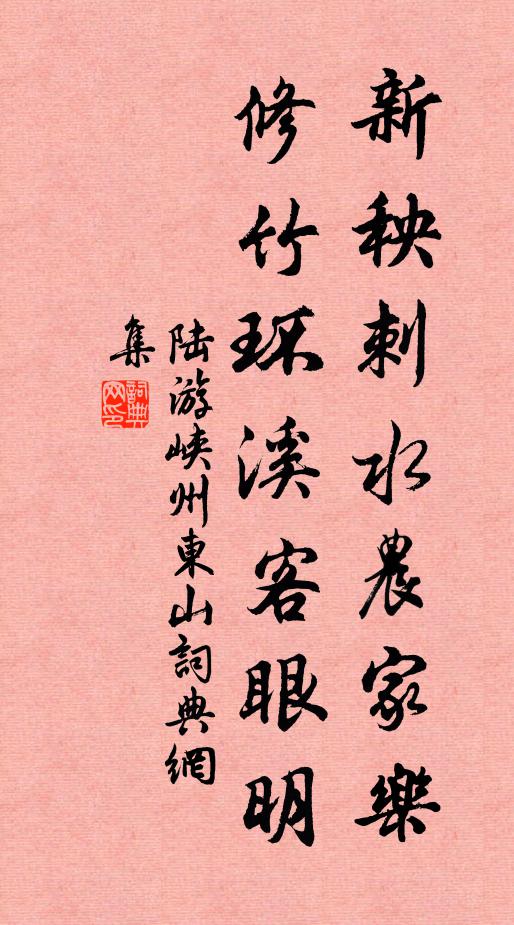 新秧刺水農家樂
修竹环溪客眼明
陆游峽州東山詞典網
集
詞典
网印